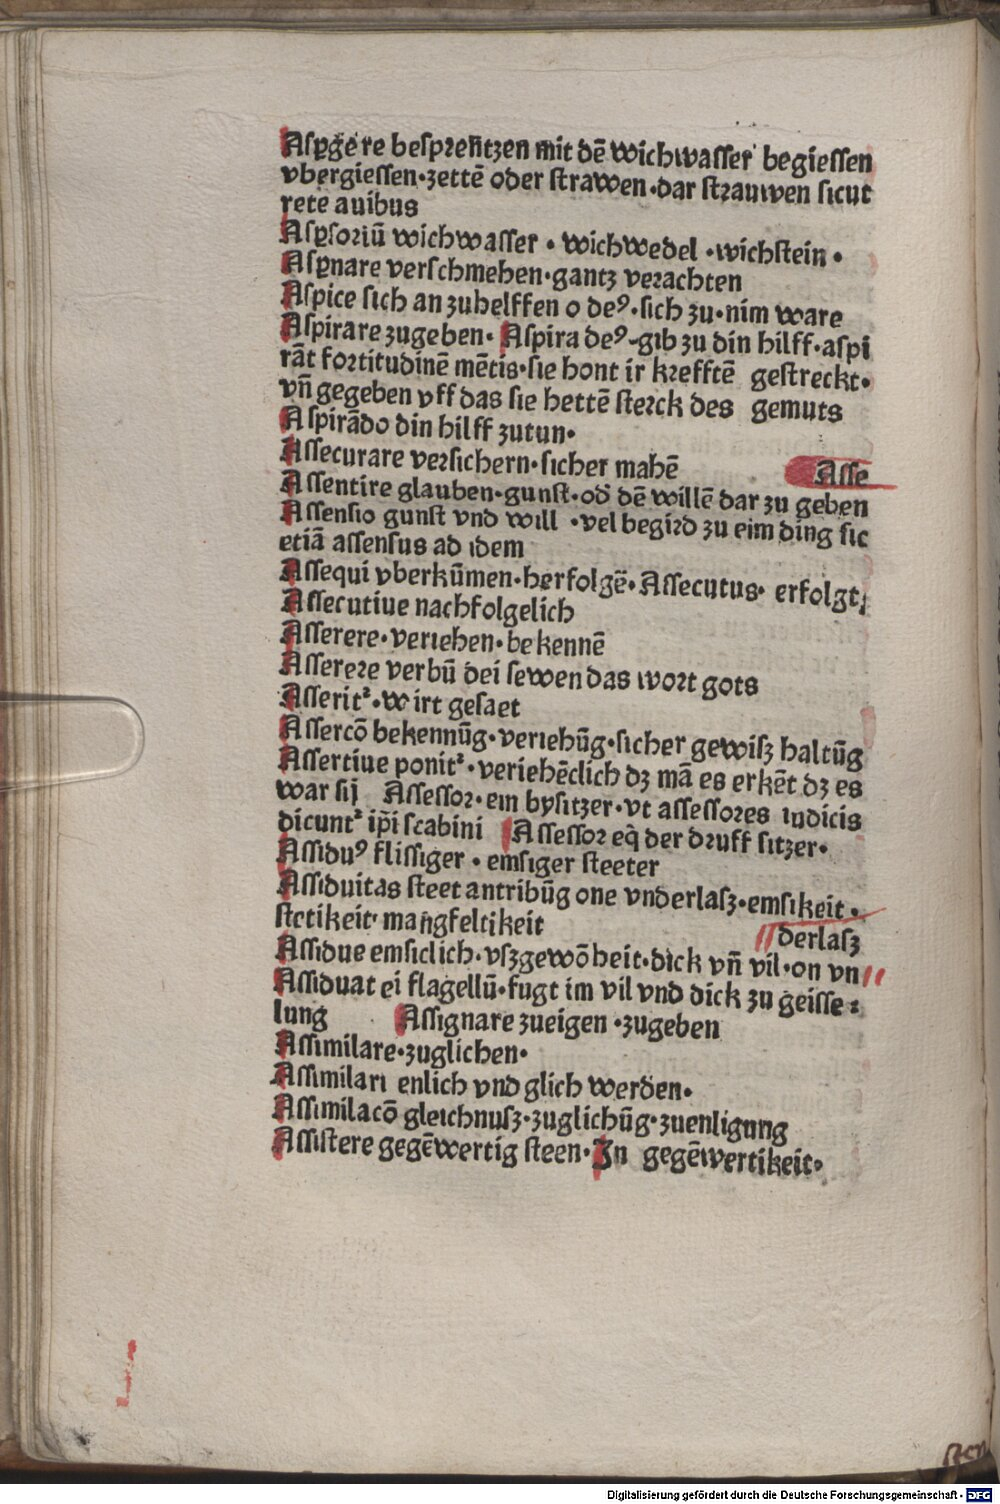 Aspgere besprentzen mit dē wichwasser begiessen
vbergiessen·zettē oder strawen·dar strauwen sicut
rete auibus
Aspsoriū wichwasser · wichwedel ·wichstein·
Aspnare verschmehen·gantz verachten
Aspice sich an zuhelffen o deꝰ·sich zu·nim ware
Aspirare zugeben· Aspira deꝰ-gib zu din hilff·aspi
rāt fortitudinē mētis·sie hont ir krefftē gestreckt·
vn̄ gegeben vff das sie hettē sterck des gemuts
Aspirādo din hilff zutun·
Assecurare versichern·sicher mahē
Asse
Assentire glauben·gunst·od dē willē dar zu geben
Assensio gunst vnd will ·vel begird zu eim ding sic
etiā assensus ad idem
Assequi vberkūmen·herfolgē·Assecutus· erfolgt,
Assecutiue nachfolgelich
Asserere·veriehen·bekennē
Asserere verbū dei sewen das wort gots
Asseritᷣ·wirt gesaet
Assercō bekennūg·veriehūg·sicher gewisz haltūg
Assertiue ponitᷣ·veriehēclich dz mā es erkēt dz es
war sij Assessor·ein bysitzer·vt assessores iudicis
dicuntᷣ ip̄i scabini Assessor eq̄ der druff sitzer·
Assiduꝰ flissiger · emsiger steeter
Assiduitas steet antribūg one vnderlasz·emsikeit·
stetikeit· mangfeltikeit
derlasz
Assidue emsiclich·vszgewōheit·dick vn̄ vil·on vn
Assiduat ei flagellū·fugt im vil vnd dick zu geisse⸗
lung Assignare zueigen ·zugeben
Assimilare·zuglichen·
Assimilari enlich vnd glich werden·
Assimilacō gleichnusz·zuglichūg·zuenligung
Assistere gegēwertig steen·In gegēwertikeit·
Digitalisierung gefördert durch die Deutsche Forschungsgemeinschaft - DFG